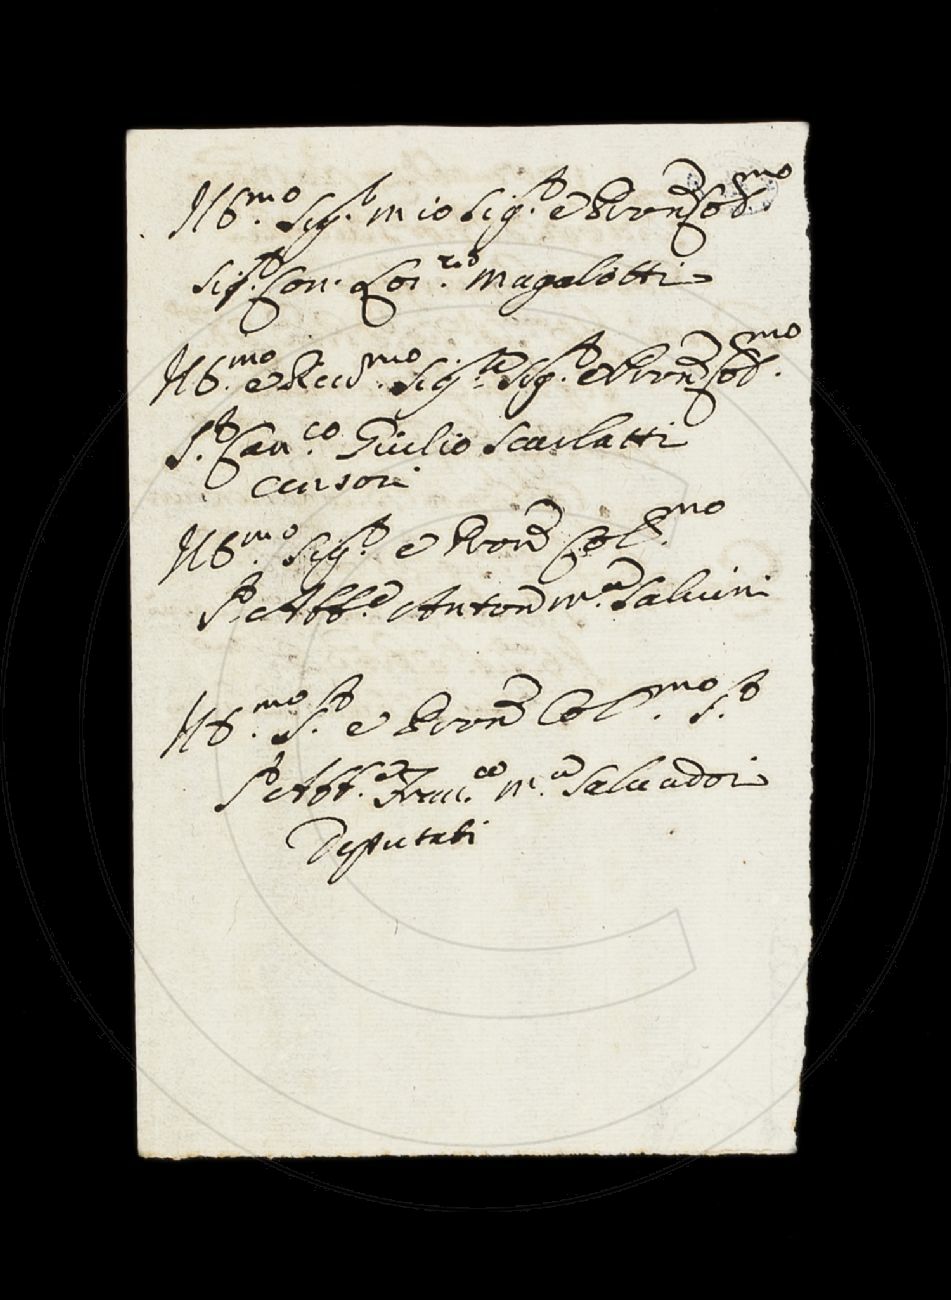 Ill.mo Sig.r mio Sig.r e Pron Col.mo
Sig.r Con. Lor.zo Magalotti
Ill.mo e Sig.re Sig.r e Pron Col.mo
S.r Can.co Giulio Scarlatti
Censori
Ill.mo Sig.r e Pron Col.mo
S.r Abb.e Anton M.a Salvini
Ill.mo S.r e Pron Col.mo S.r
S.r Abb.e Fran.co M.a Salvadori
Deputati